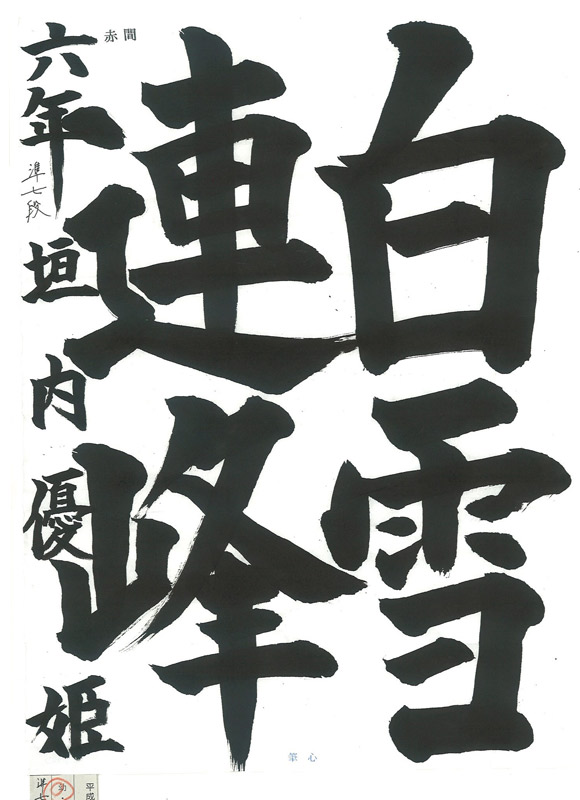 白雪
連峰
赤間
六年 垣内優姫
準七段
心筆
平成
準七